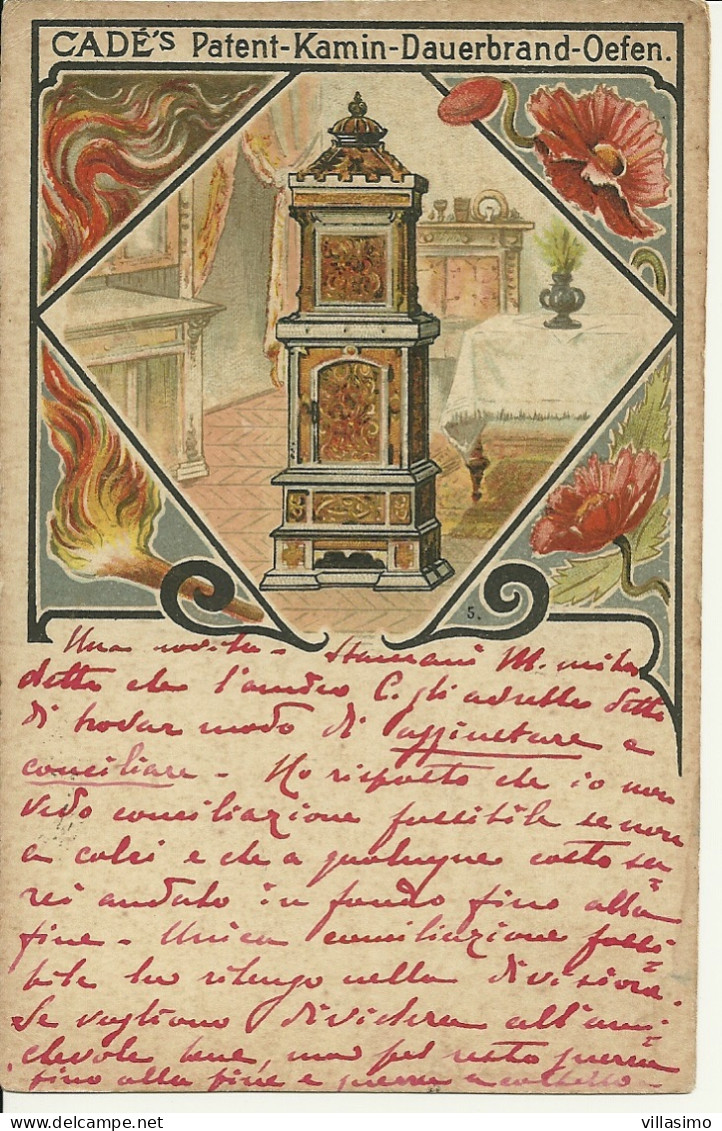 CADÉ'S Patent-Kamin-Dauerbrand-Oefen.
5.
Una novità - Stamani M. mi ha
detto che l'amico C. gli avrebbe detto
di trovar modo di e
conciliare - Ho risposto che io non
vedo conciliazione possibile se non
a calci e che a qualunque costo sa=
rei andato in fondo fino alla
fine - Unica conciliazione possi=
bile la ritengo nella divisione.
Se vogliono dividere all'ami=
chevole bene, ma pel resto guerra
fino alla fine e guerra a coltello -
villasimo